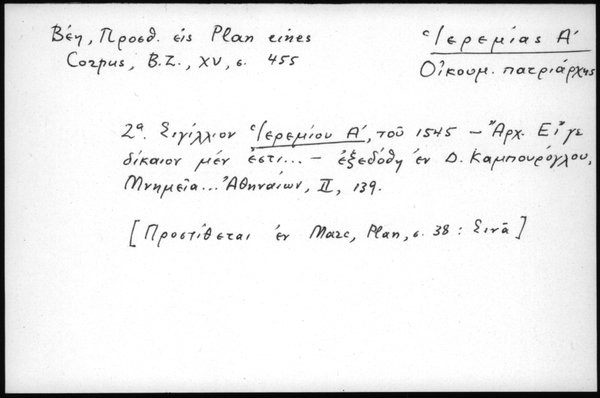 Βέη, Προσθ. εἰς Plan eines
Corpus, B.Z., XV, σ. 455
Ἱερεμίας Α΄
Οἰκουμ. πατριάρχης
2α. Σιγίλλιον Ἱερεμίου Α΄, τοῦ 1545 – Ἀρχ. Εἴ γε
δίκαιον μέν ἐστι... – ἐξεδόθη ἐν Δ. Καμπούρογλου,
Μνημεῖα... Ἀθηναίων, II, 139.
[Προστίθεται ἐν Marc, Plan, σ. 38 : Σινᾶ]